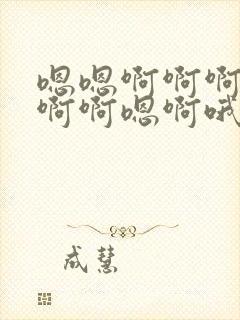 嗯嗯啊啊啊
啊啊嗯啊哦
成慧